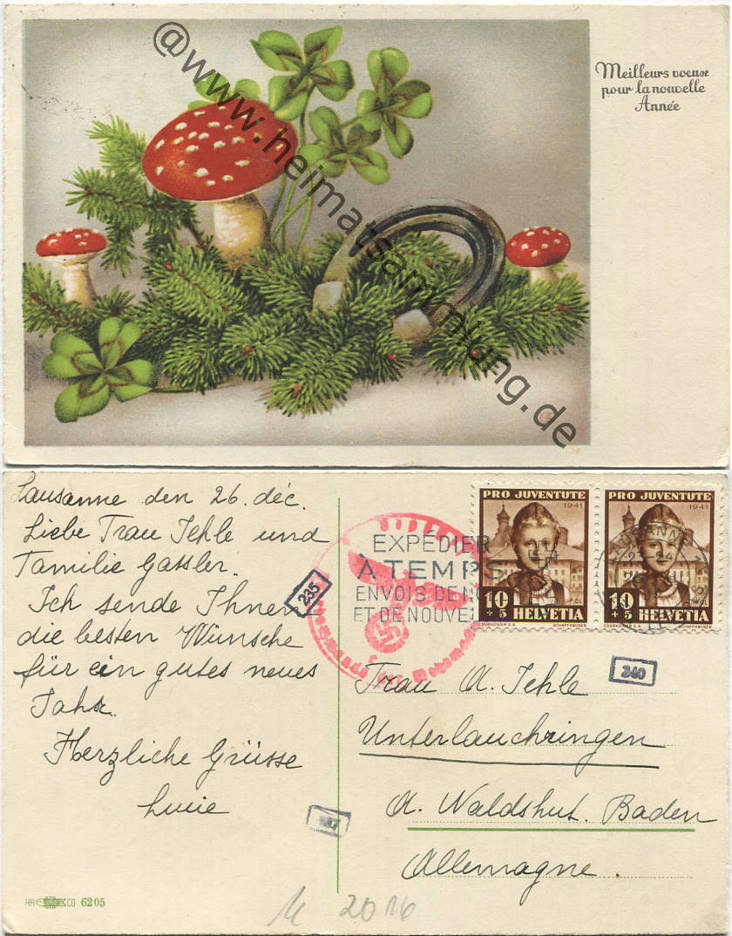 Meilleurs voeux
pour la nouvelle
Année
@www.heimatsammlung.de
Lausanne den 26. déc.
Liebe Frau Jehle und
Familie Gassler.
Ich sende Ihnen
die besten Wünsche
für ein gutes neues
Jahr.
Herzliche Grüsse
Lucie
6205
235
EXPÉDIER
À TEMPS
ENVOIS DE NO
ET DE NOUVEL
PRO JUVENTUTE
1941
10
+5
HELVETIA
PRO JUVENTUTE
1941
10
+5
HELVETIA
LAUSANNE
240
Frau A. Jehle
Unterlauchringen
A. Waldshut. Baden
Allemagne.
2016